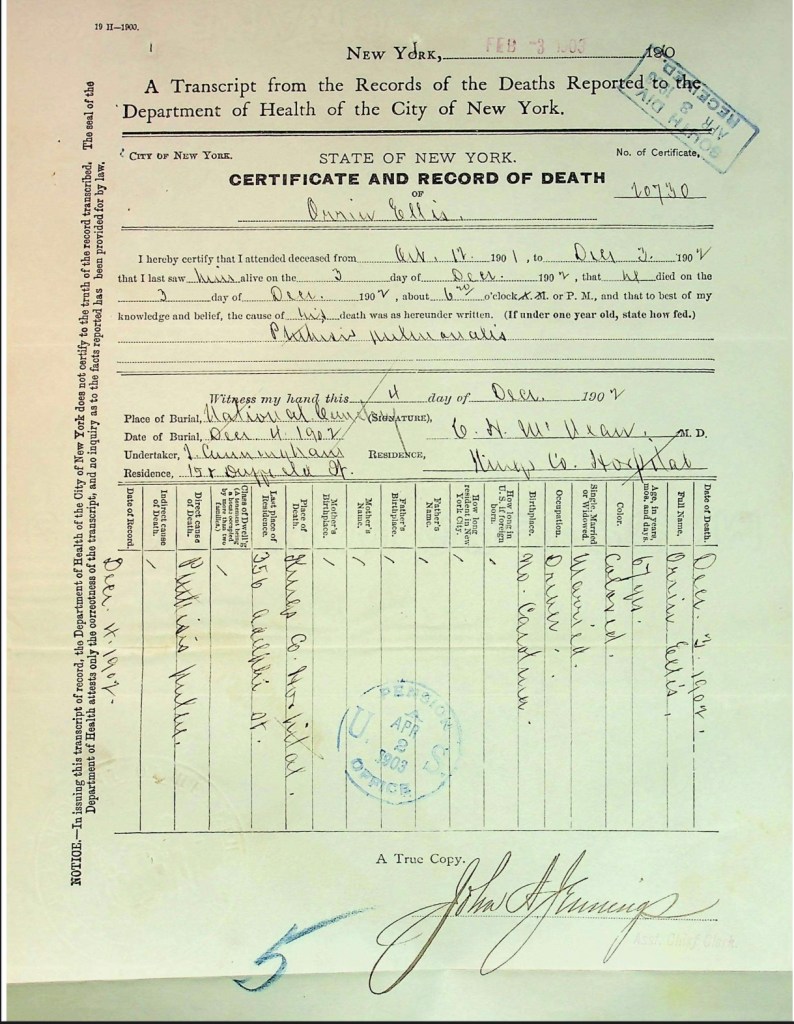 19 H—1900.
NEW YORK, FEB -3 1903 190
A Transcript from the Records of the Deaths Reported to the
Department of Health of the City of New York.
SOUTH DIV
APR 3
RECEIVED
CITY OF NEW YORK.
STATE OF NEW YORK.
No. of Certificate,
CERTIFICATE AND RECORD OF DEATH
OF
20730
Orrin Ellis.
I hereby certify that I attended deceased from Oct. 12. 1901, to Decr 3. 1902
that I last saw him alive on the 3 day of Decr. 1902, that he died on the
3 day of Decr. 1902, about 6 o'clock A. M. or P. M., and that to best of my
knowledge and belief, the cause of his death was as hereunder written. (If under one year old, state how fed.)
Phthisis pulmonalis
Witness my hand this 4 day of Decr. 1902
Place of Burial, National Cemetery (SIGNATURE),
Date of Burial, Decr 4 1902 C. H. McLean, M. D.
Undertaker, J. Cunningham RESIDENCE,
Residence, 152 Duffield St. Kings Co. Hospital
Date of Death. Decr. 3 1902.
Full Name, Orrin Ellis,
Age, in years, mos. and days. 67 yrs.
Color. Colored.
Single, Married or Widowed. Married.
Occupation. Driver.
Birthplace. No. Carolina.
How long in U. S. if foreign born. /
How long resident in New York City. /
Father's Name. /
Father's Birthplace. /
Mother's Name. /
Mother's Birthplace. /
Place of Death. Kings Co. Hospital.
Last place of Residence. 356 Adelphi St.
Class of Dwell'g (A tenement being a house occupied by more than two families.) /
Direct cause of Death. Phthisis pulm.
Indirect cause of Death. /
Date of Record. Decr. 4. 1902.
PENSION
U. S.
APR
1903
OFFICE
A True Copy.
John A Jennings
Asst. Chief Clerk.
5
NOTICE.—In issuing this transcript of record, the Department of Health of the City of New York does not certify to the truth of the record transcribed. The seal of the
Department of Health attests only the correctness of the transcript, and no inquiry as to the facts reported has been provided for by law.